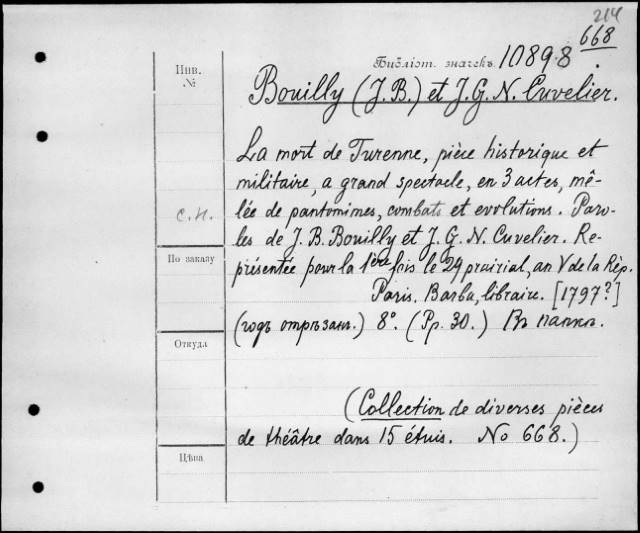 214
668
Библіот. значекъ 10898
Инв.
№
Bouilly (J.B.) et J.G.N. Cuvelier.
La mort de Turenne, pièce historique et
militaire, a grand spectacle, en 3 actes, mê-
lée de pantomimes, combats et evolutions. Paro-
с.н.
les de J. B. Bouilly et J. G. N. Cuvelier. Re-
По заказу
présentée pour la 1ère fois le 24 prairial, an V de la Rép.
Paris. Barba, libraire. [1797?]
(годъ отрѣзанъ.) 8°. (Pp. 30.) Въ папкѣ.
Откуда
(Collection de diverses pièces
de théâtre dans 15 étuis. No 668.)
Цѣна